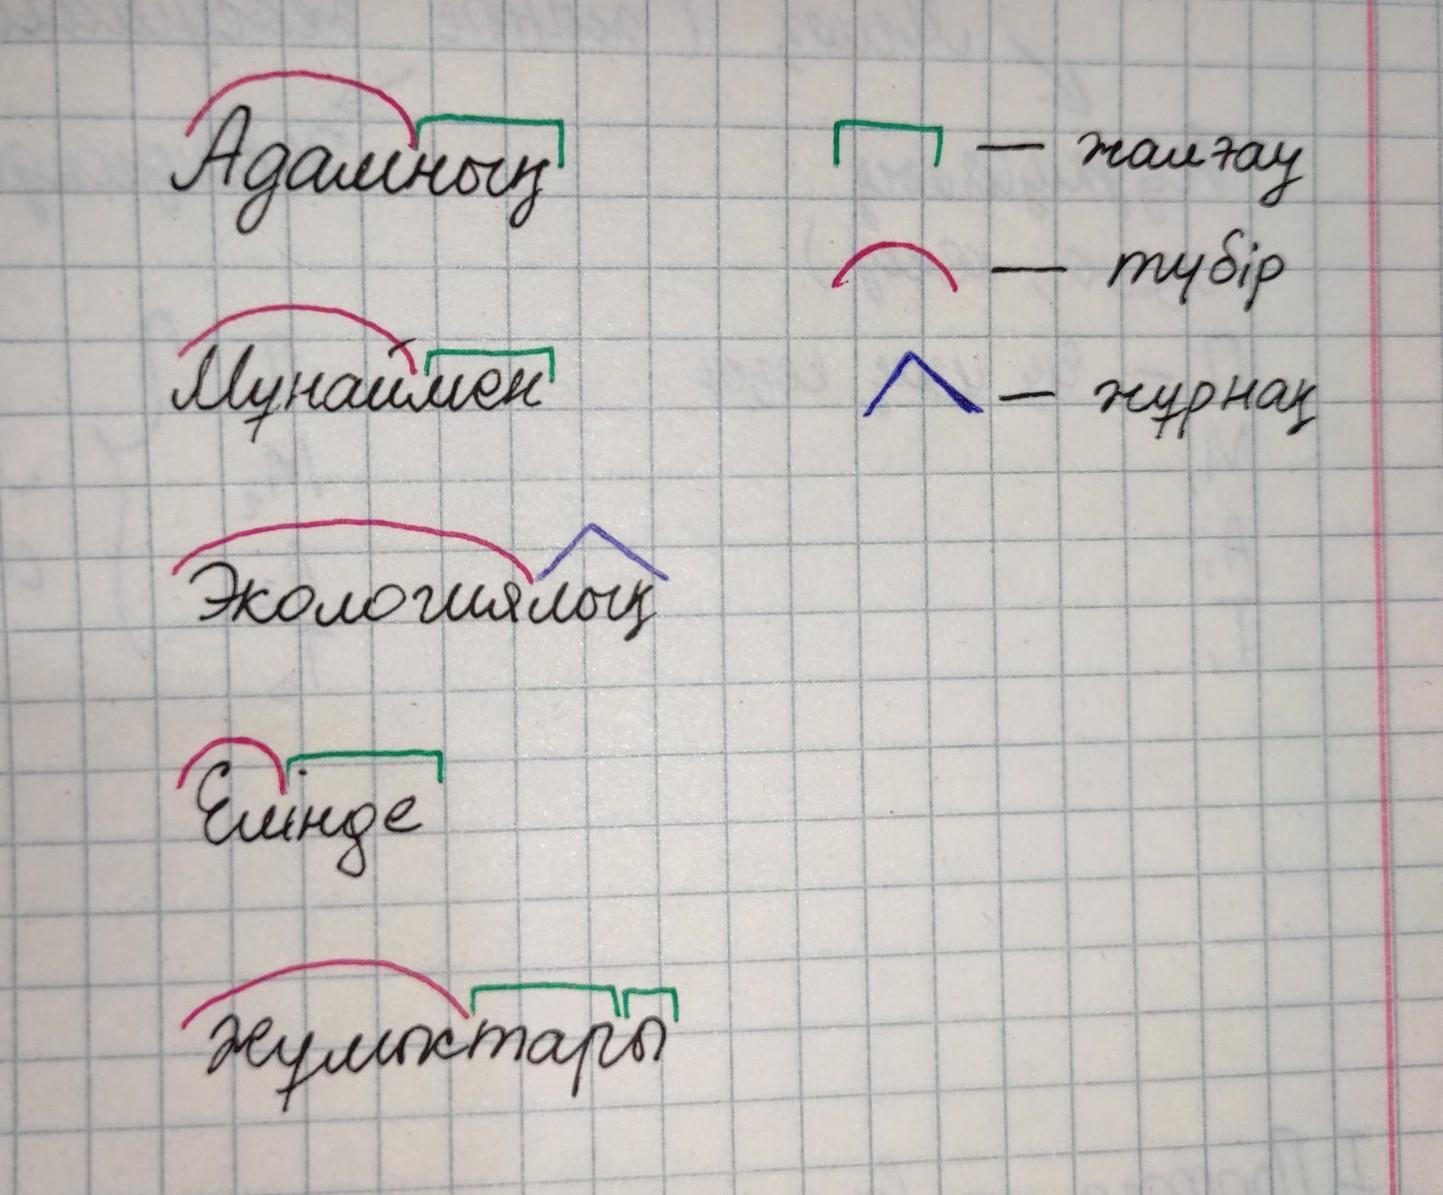 Адамның
— жалғау
— түбір
Мұнаймен
— жұрнақ
Экологиялық
Елінде
Жұмыстары